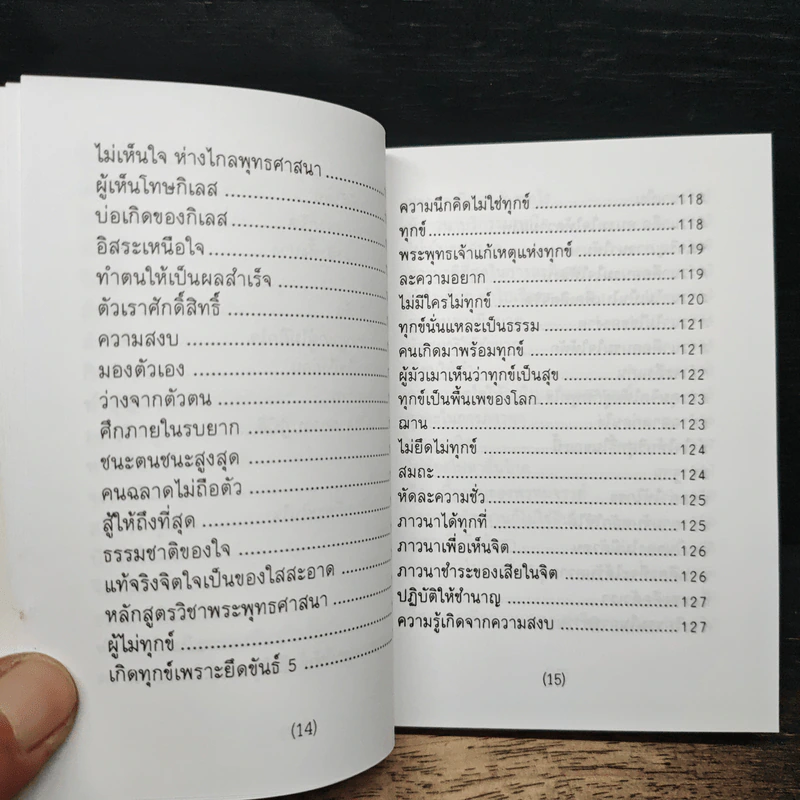 ไม่เห็นใจ ห่างไกลพุทธศาสนา
ผู้เห็นโทษกิเลส
บ่อเกิดของกิเลส
อิสระเหนือใจ
ทำตนให้เป็นผลสำเร็จ
ตัวเราศักดิ์สิทธิ์
ความสงบ
มองตัวเอง
ว่างจากตัวตน
ศึกภายในรบยาก
ชนะตนชนะสูงสุด
คนฉลาดไม่ถือตัว
สู้ให้ถึงที่สุด
ธรรมชาติของใจ
แท้จริงจิตใจเป็นของใสสะอาด
หลักสูตรวิชาพระพุทธศาสนา
ผู้ไม่ทุกข์
เกิดทุกข์เพราะยึดขันธ์ 5
(14)
ความนึกคิดไม่ใช่ทุกข์ 118
ทุกข์ 118
พระพุทธเจ้าแก้เหตุแห่งทุกข์ 119
ละความอยาก 119
ไม่มีใครไม่ทุกข์ 120
ทุกข์นั่นแหละเป็นธรรม 121
คนเกิดมาพร้อมทุกข์ 121
ผู้มัวเมาเห็นว่าทุกข์เป็นสุข 122
ทุกข์เป็นพื้นเพของโลก 123
ฌาน 123
ไม่ยึดไม่ทุกข์ 124
สมถะ 124
หัดละความชั่ว 125
ภาวนาได้ทุกที่ 125
ภาวนาเพื่อเห็นจิต 126
ภาวนาชำระของเสียในจิต 126
ปฏิบัติให้ชำนาญ 127
ความรู้เกิดจากความสงบ 127
(15)